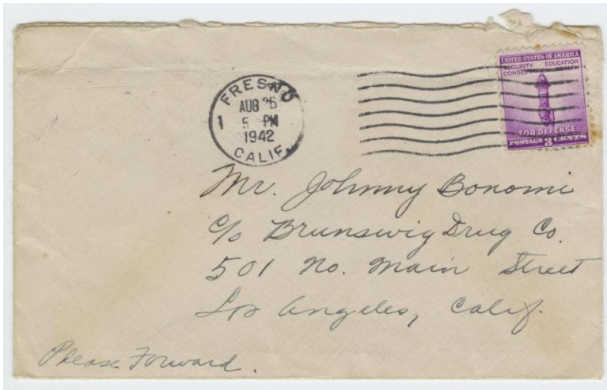 FRESNO
AUG 26
1 5 PM
1942
CALIF.
UNITED STATES OF AMERICA
SECURITY EDUCATION
CONSERVATION HEALTH
FOR DEFENSE
POSTAGE 3 CENTS
Mr. Johnny Bonomi
c/o Brunswig Drug Co.
501 No. Main Street
Los Angeles, Calif.
Please Forward.